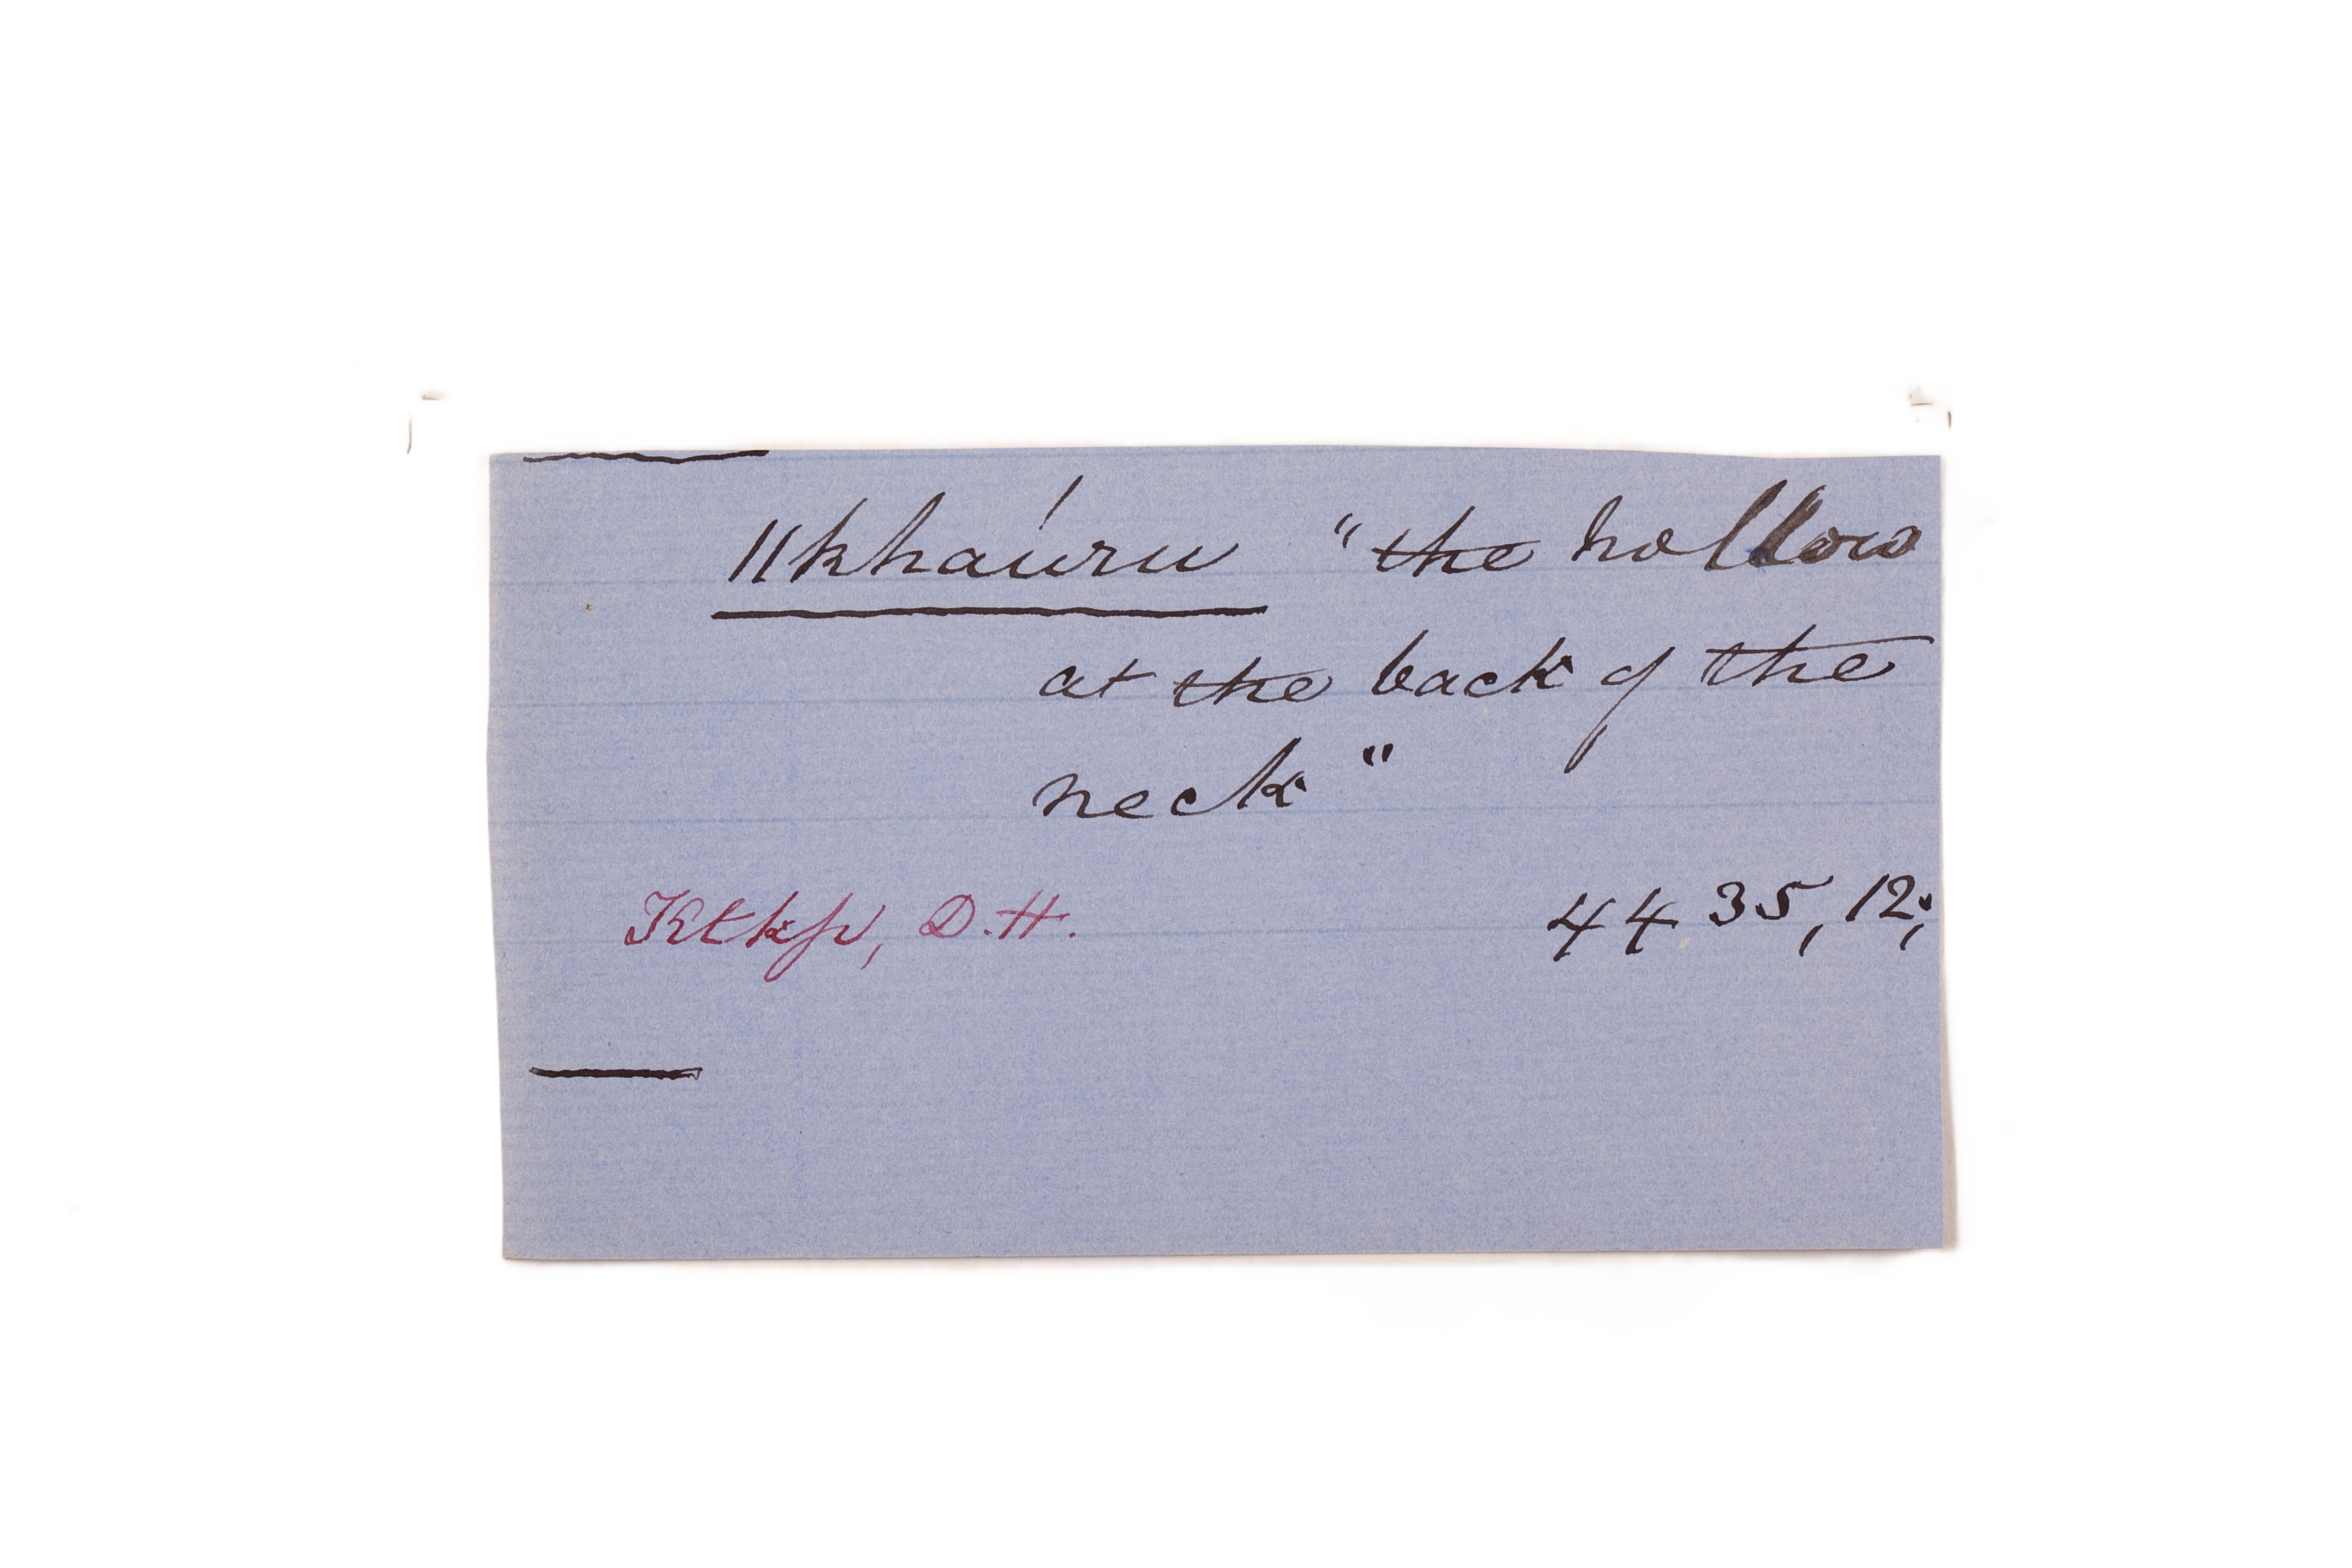 ǁkhaúru "the hollow
at the back of the
neck"
Ktkp, D.H. 44 35, 12;